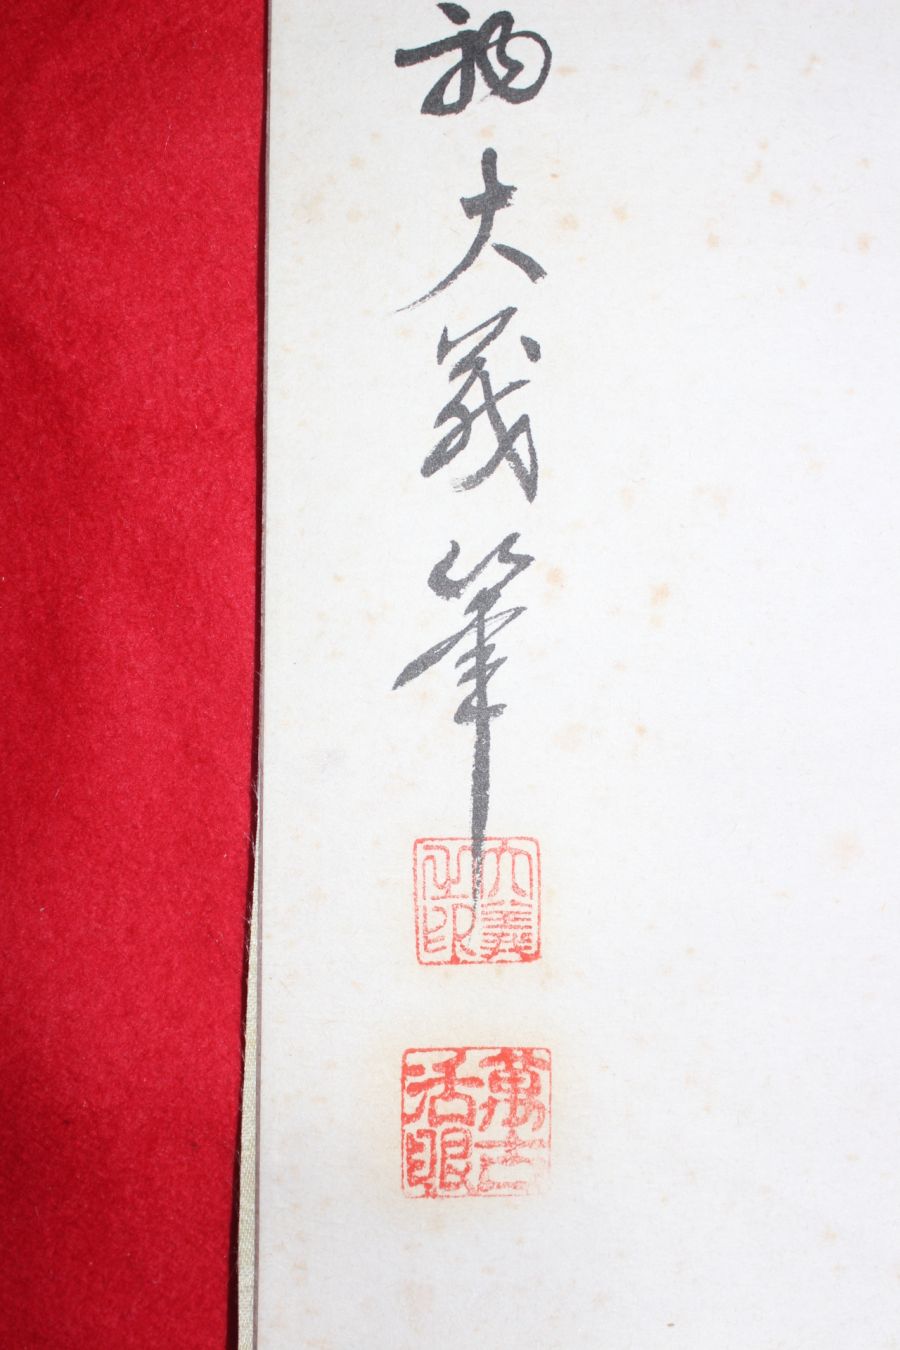 大義筆
大義之印
萬古活眼